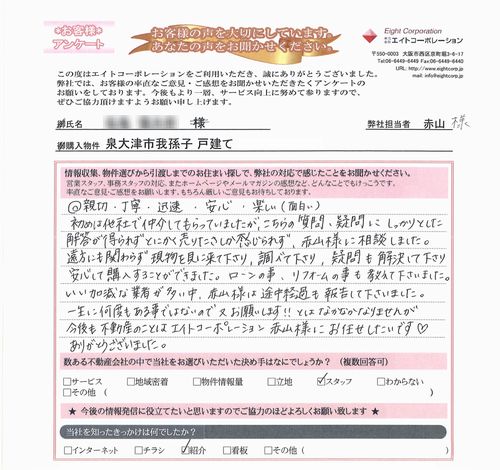 *お客様*
アンケート
お客様の声を大切にしています。
あなたの声をお聞かせください。
Eight Corporation
株式会社エイトコーポレーション
〒550-0003 大阪市西区京町堀3-6-17
Tel:06-6449-6449 Fax:06-6449-6440
URL: http://www.eightcorp.jp
mail: info@eightcorp.jp
この度はエイトコーポレーションをご利用いただき、誠にありがとうございました。
弊社では、お客様の率直なご意見・ご感想をお聞かせいただきたくアンケートの
お願いをしております。今後もより一層、サービス向上に努めて参りますので、
ぜひご協力頂けますようお願い申し上げます。
御氏名 様 弊社担当者 赤山 様
御購入物件 泉大津市我孫子 戸建て
情報収集、物件選びから引渡しまでのお住まい探しで、弊社の対応で感じたことをお聞かせください。
営業スタッフ、事務スタッフの対応、またホームページやメールマガジンの感想など、どんなことでもけっこうです。
率直なご意見・ご感想をお願いします。もちろん厳しいご意見もお待ちしております。
◎親切・丁寧・迅速・安心・楽しい(面白い)
初めは他社で仲介してもらっていましたが、こちらの質問、疑問にしっかりとした
解答が得られずとにかく売りたさしか感じられず、赤山様に相談しました。
遠方にも関わらず現物を見に来て下さり、調べて下さり、疑問も解決して下さり
安心して購入することができました。ローンの事、リフォームの事も教えて下さいました。
いい加減な業者が多い中、赤山様は途中経過も報告して下さいました。
一生に何度もある事ではないので又お願いします!!とはなかなかなりませんが
今後も不動産のことはエイトコーポレーション赤山様にお任せしたいです♡
ありがとうございました。
数ある不動産会社の中で当社をお選びいただいた決め手はなにでしょうか?(複数回答可)
□サービス □地域密着 □物件情報量 □立地 ☑スタッフ □わからない
□その他( )
★ 今後の情報発信に役立てたいと思いますのでご協力のほどよろしくお願い致します ★
当社を知ったきっかけは何でしたか?
□インターネット □チラシ ☑紹介 □看板 □その他( )